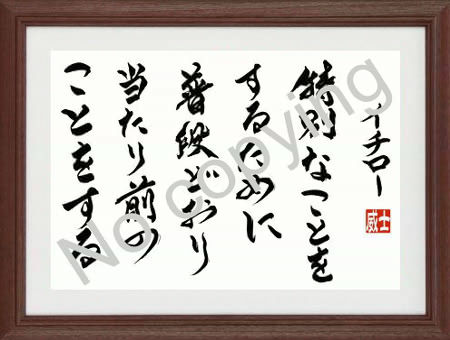 イチロー
特別なことを
するために
普段どおり
当たり前の
ことをする
威士
No copying